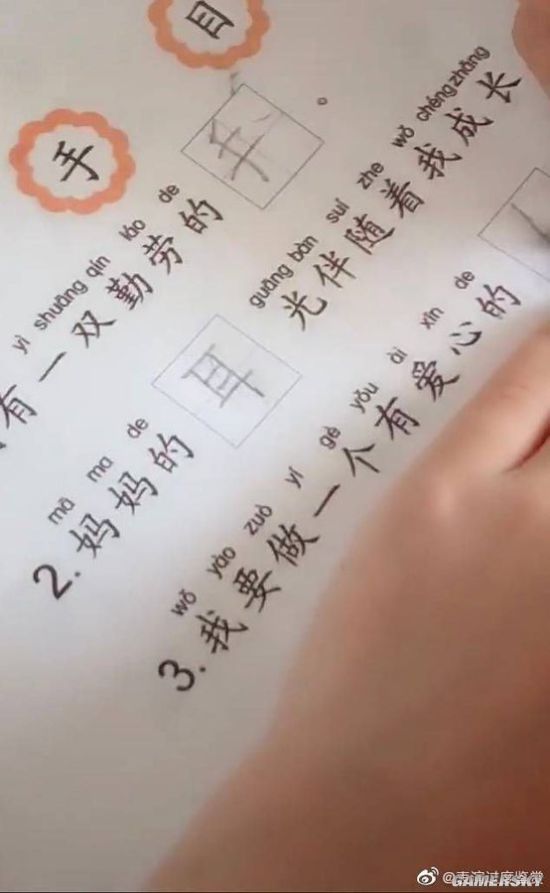 手 目
yì shuāng qín láo de
有一双勤劳的 。
mā ma de guāng bàn suí zhe wǒ chéng zhǎng
2. 妈妈的 耳 光伴随着我成长
wǒ yào zuò yí gè yǒu ài xīn de
3. 我要做一个有爱心的
GAMERSKY